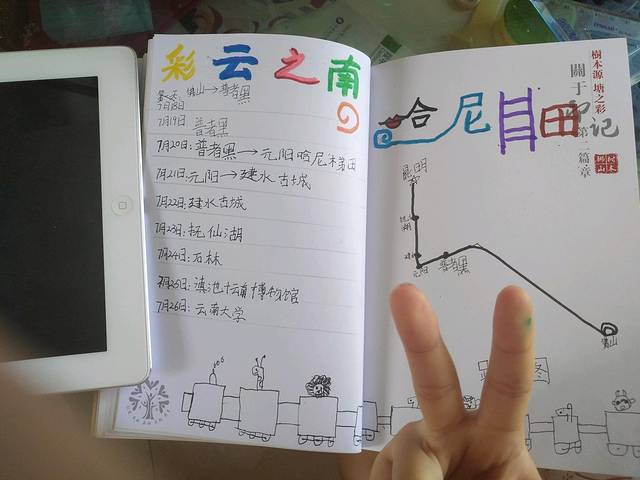 彩云之南
第一天: 佛山→普者黑
7月18日
7月19日 普者黑
7月20日: 普者黑→元阳哈尼梯田
7月21日: 元阳→建水古城
7月22日: 建水古城
7月23日: 抚仙湖
7月24日: 石林
7月25日: 滇池 云南博物馆
7月26日: 云南大学
哈尼目田
樹木源 塘之彩
關于
印记
第二篇章
昆明
抚仙湖
建水
元阳
普者黑
佛山
图